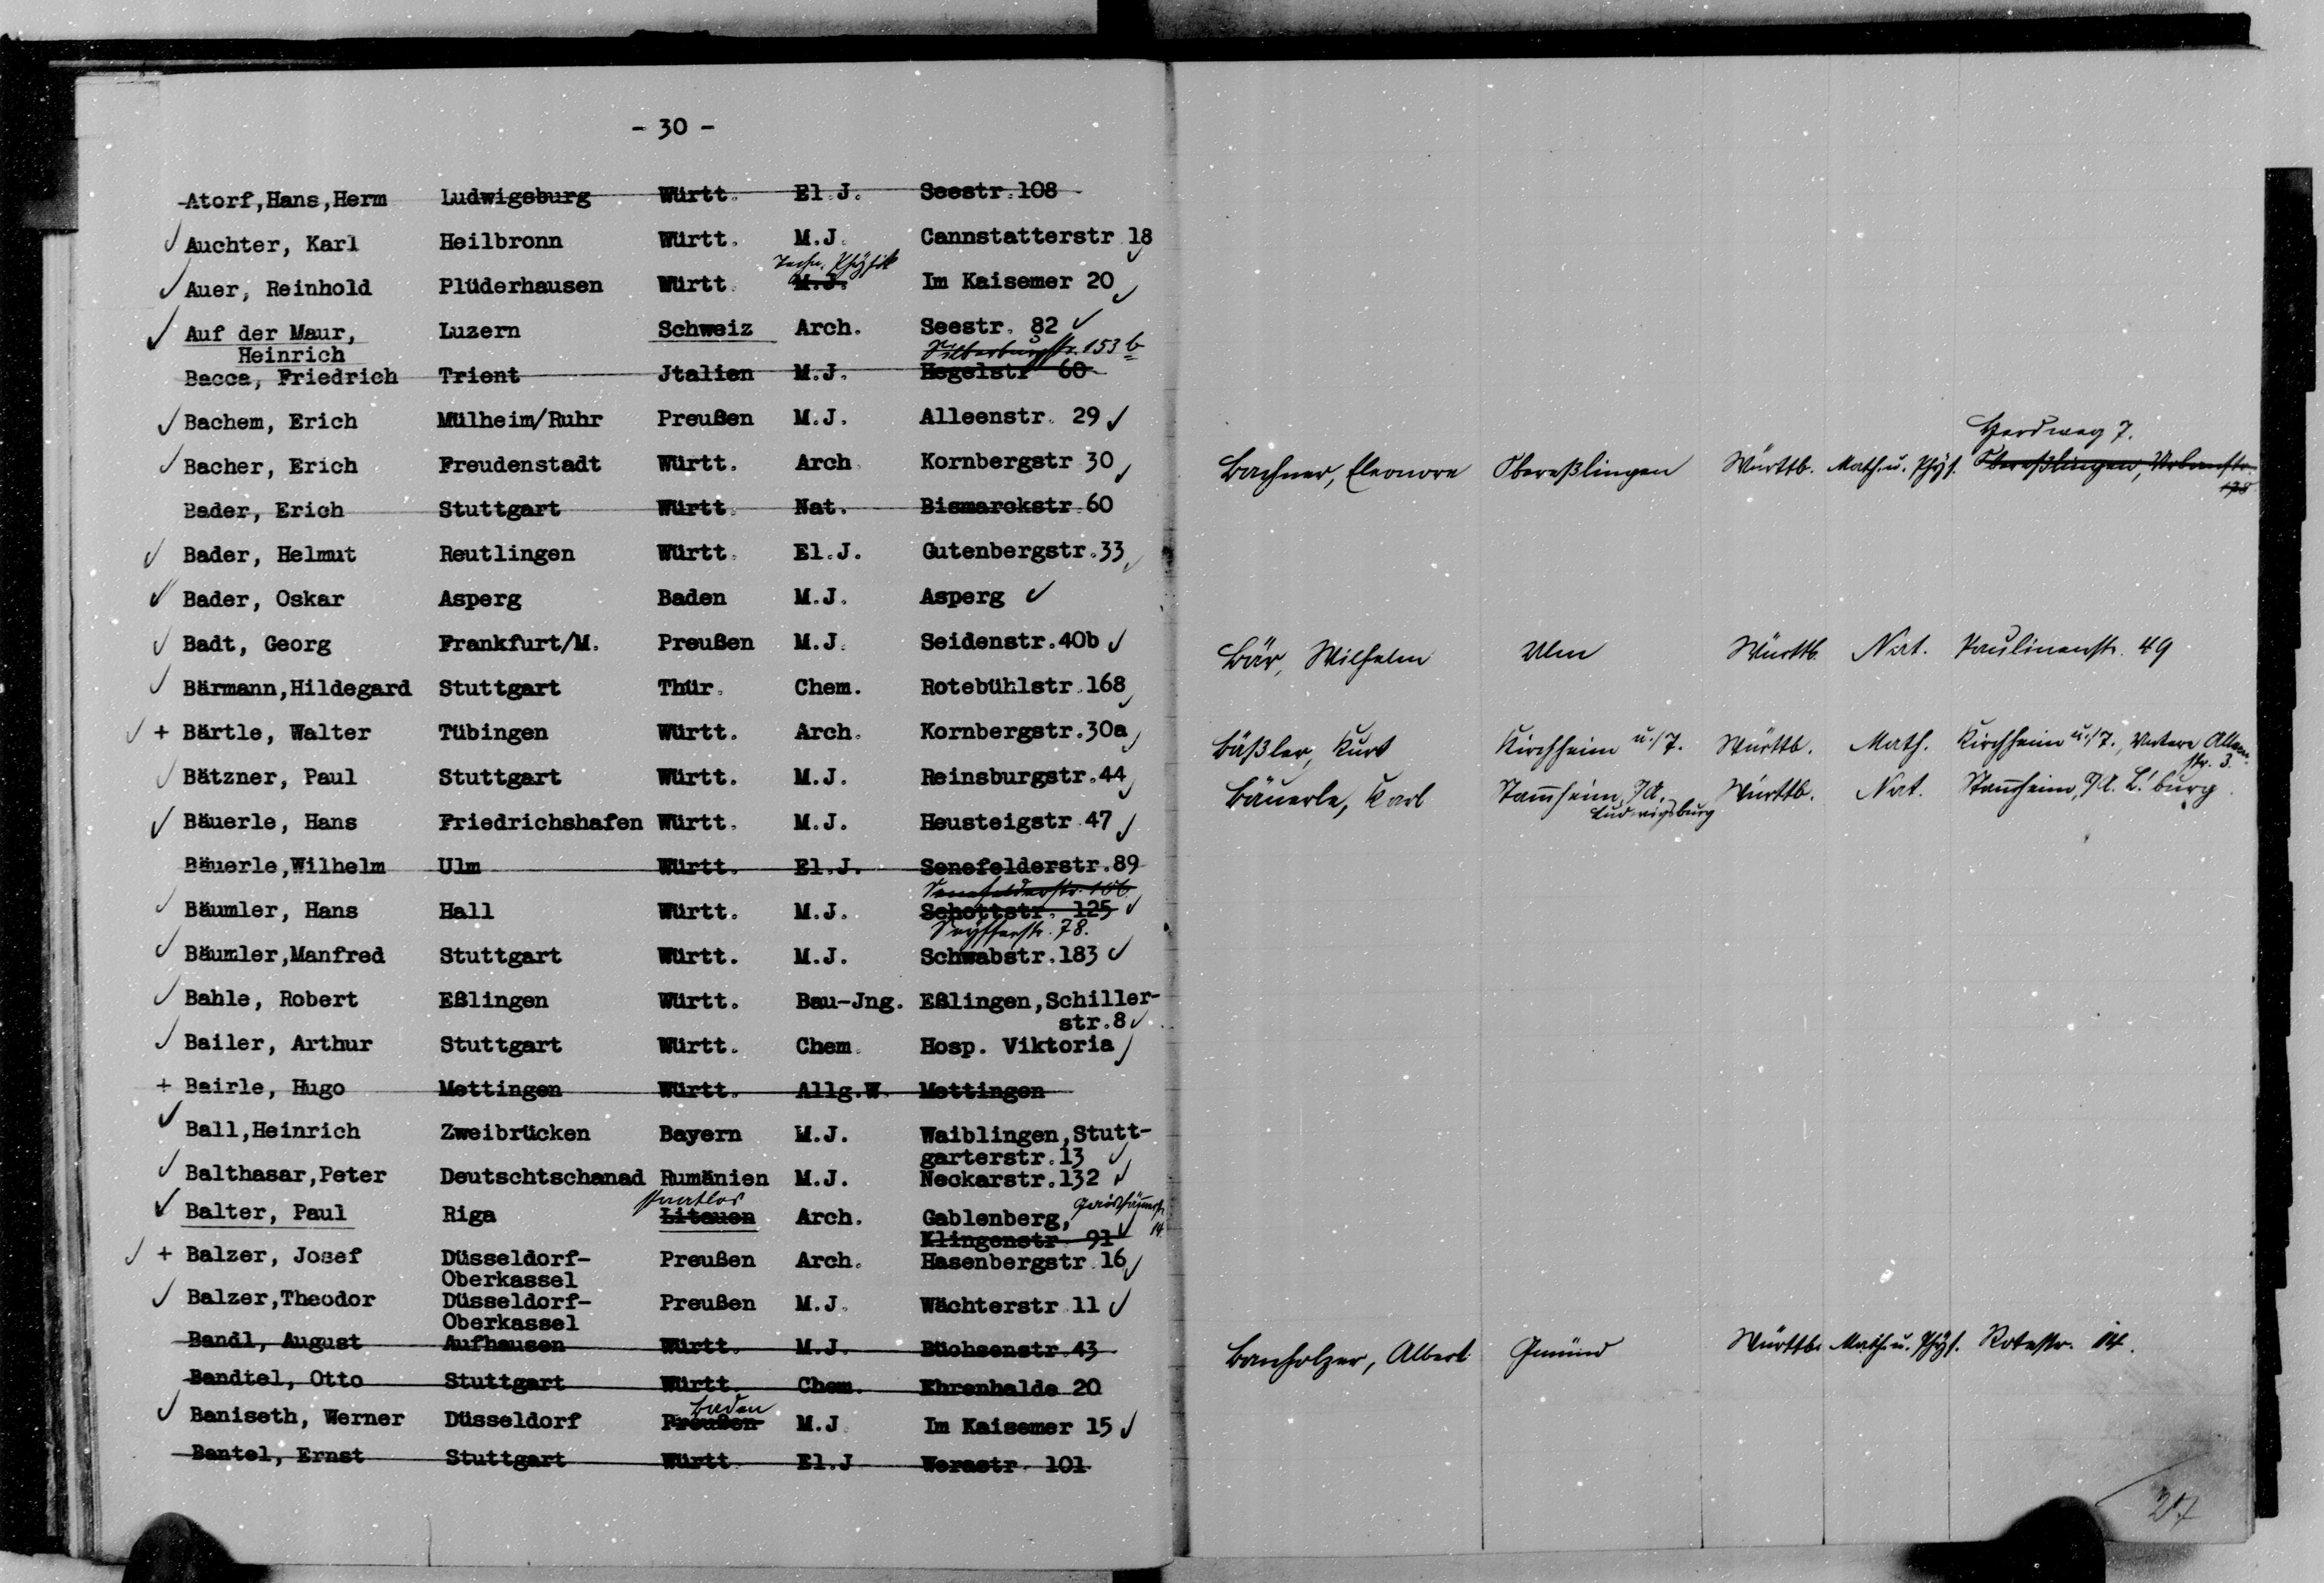 - 30 -
Atorf,Hans,Herm Ludwigsburg Württ. El.J. Seestr.108
Auchter, Karl Heilbronn Württ. M.J. Cannstatterstr 18
Techn. Physik
Auer, Reinhold Plüderhausen Württ. M.J. Im Kaisemer 20
Auf der Maur, Luzern Schweiz Arch. Seestr. 82
Heinrich Silberburgstr. 153 b
Bacca, Friedrich Trient Jtalien M.J. Hegelstr 60
Bachem, Erich Mülheim/Ruhr Preußen M.J. Alleenstr. 29
Bacher, Erich Freudenstadt Württ. Arch. Kornbergstr 30
Bader, Erich Stuttgart Württ. Nat. Bismarckstr.60
Bader, Helmut Reutlingen Württ. El.J. Gutenbergstr.33
Bader, Oskar Asperg Baden M.J. Asperg
Badt, Georg Frankfurt/M. Preußen M.J. Seidenstr.40b
Bärmann,Hildegard Stuttgart Thür. Chem. Rotebühlstr.168
+ Bärtle, Walter Tübingen Württ. Arch. Kornbergstr.30a
Bätzner, Paul Stuttgart Württ. M.J. Reinsburgstr.44
Bäuerle, Hans Friedrichshafen Württ. M.J. Heusteigstr 47
Bäuerle,Wilhelm Ulm Württ. El.J. Senefelderstr.89
Senefelderstr. 106
Bäumler, Hans Hall Württ. M.J. Schottstr. 125
Seyfferstr. 78.
Bäumler,Manfred Stuttgart Württ. M.J. Schwabstr.183
Bahle, Robert Eßlingen Württ. Bau-Jng. Eßlingen,Schiller-
str.8
Bailer, Arthur Stuttgart Württ. Chem. Hosp. Viktoria
+ Bairle, Hugo Mettingen Württ. Allg.W. Mettingen
Ball,Heinrich Zweibrücken Bayern M.J. Waiblingen,Stutt-
garterstr.13
Balthasar,Peter Deutschtschanad Rumänien M.J. Neckarstr.132
staatlos
Balter, Paul Riga Litauen Arch. Gablenberg, 14
Klingenstr. 91
+ Balzer, Josef Düsseldorf- Preußen Arch. Hasenbergstr.16
Oberkassel
Balzer,Theodor Düsseldorf- Preußen M.J. Wächterstr 11
Oberkassel
Bandl, August Aufhausen Württ. M.J. Büchsenstr.43
Bandtel, Otto Stuttgart Württ. Chem. Ehrenhalde 20
Baden
Baniseth, Werner Düsseldorf Preußen M.J. Im Kaisemer 15
Bantel, Ernst Stuttgart Württ. El.J Werastr. 101
Herdweg 7.
Bachner, Eleonore Obereßlingen Württb. Math. u. Phys. Obereßlingen, Urbanstr.
178
Bär, Wilhelm Ulm Württb. Nat. Paulinenstr. 49
Bäßler, Kurt Kirchheim u./T. Württb. Math. Kirchheim u./T., Untere Alleen-
str. 3.
Bäuerle, Karl Stam̄heim, O/A. Württb. Nat. Stam̄heim, O/A. L'burg.
Ludwigsburg
Banholzer, Albert Gmünd Württb. Math. u. Phys. Rotestr. 14.
27